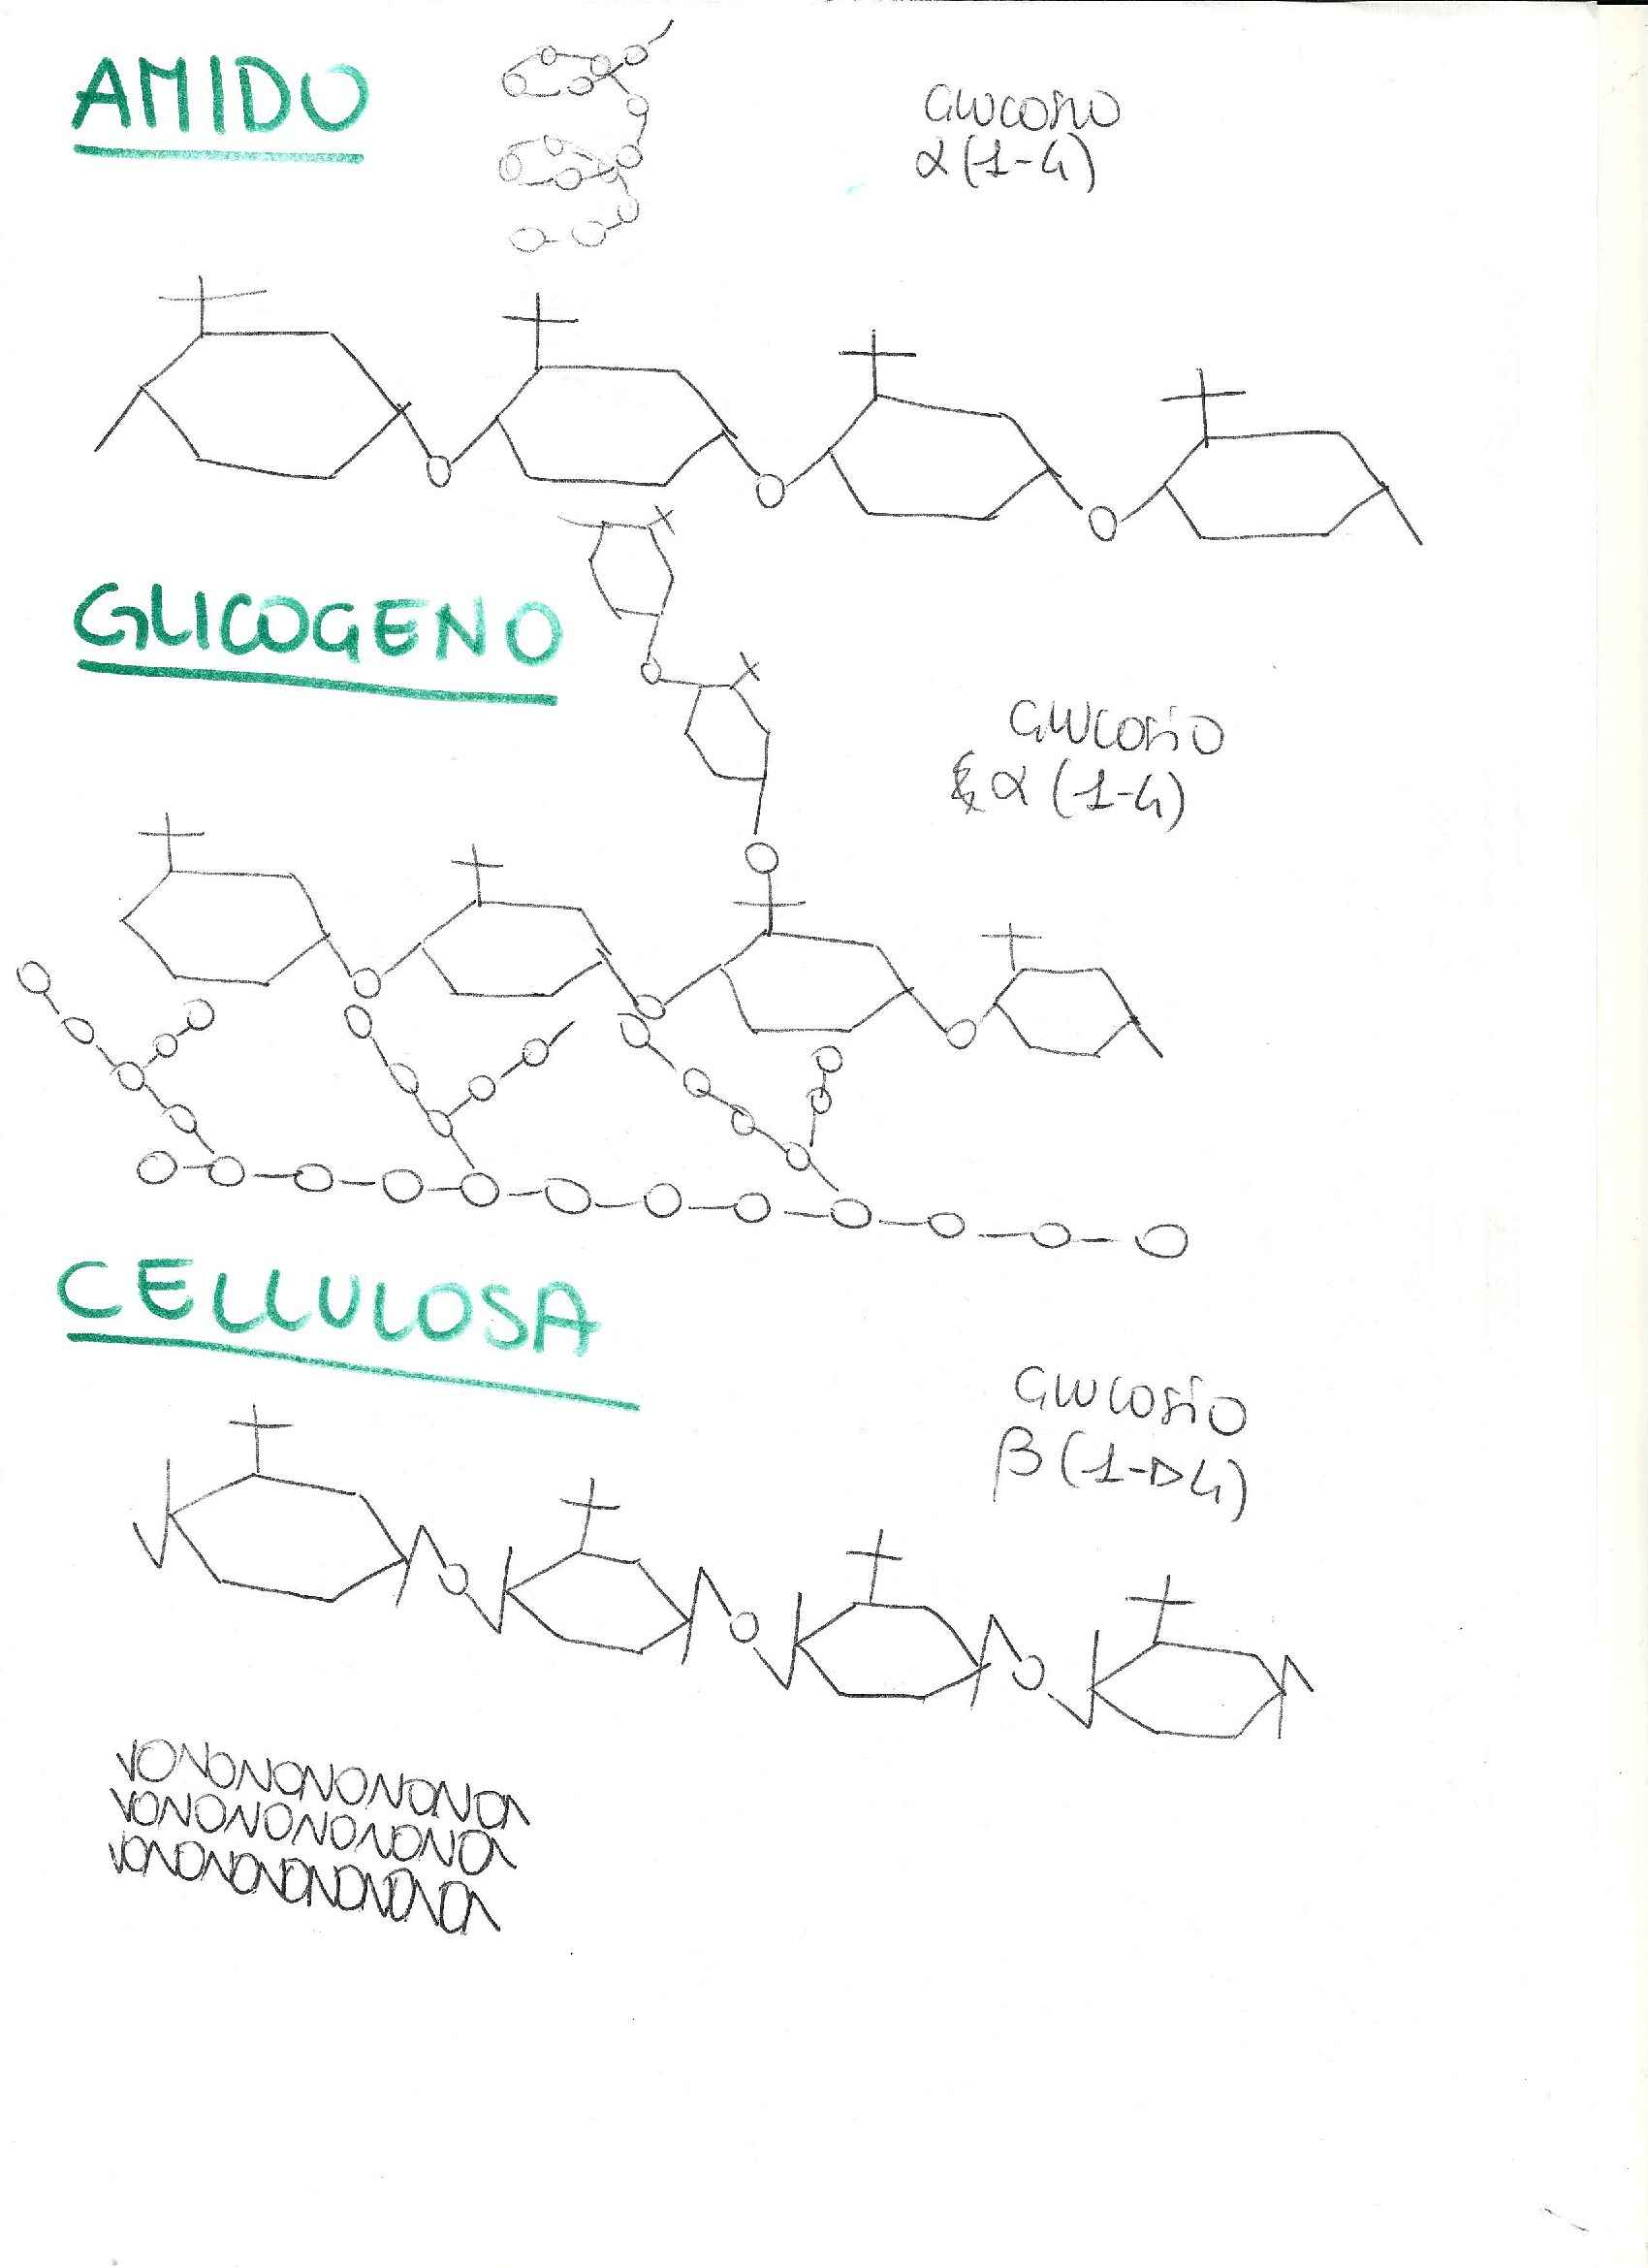 AMIDO
GLUCOSIO
α(1-4)
GLICOGENO
GLUCOSIO
α (1-4)
CELLULOSA
GLUCOSIO
β (1→4)